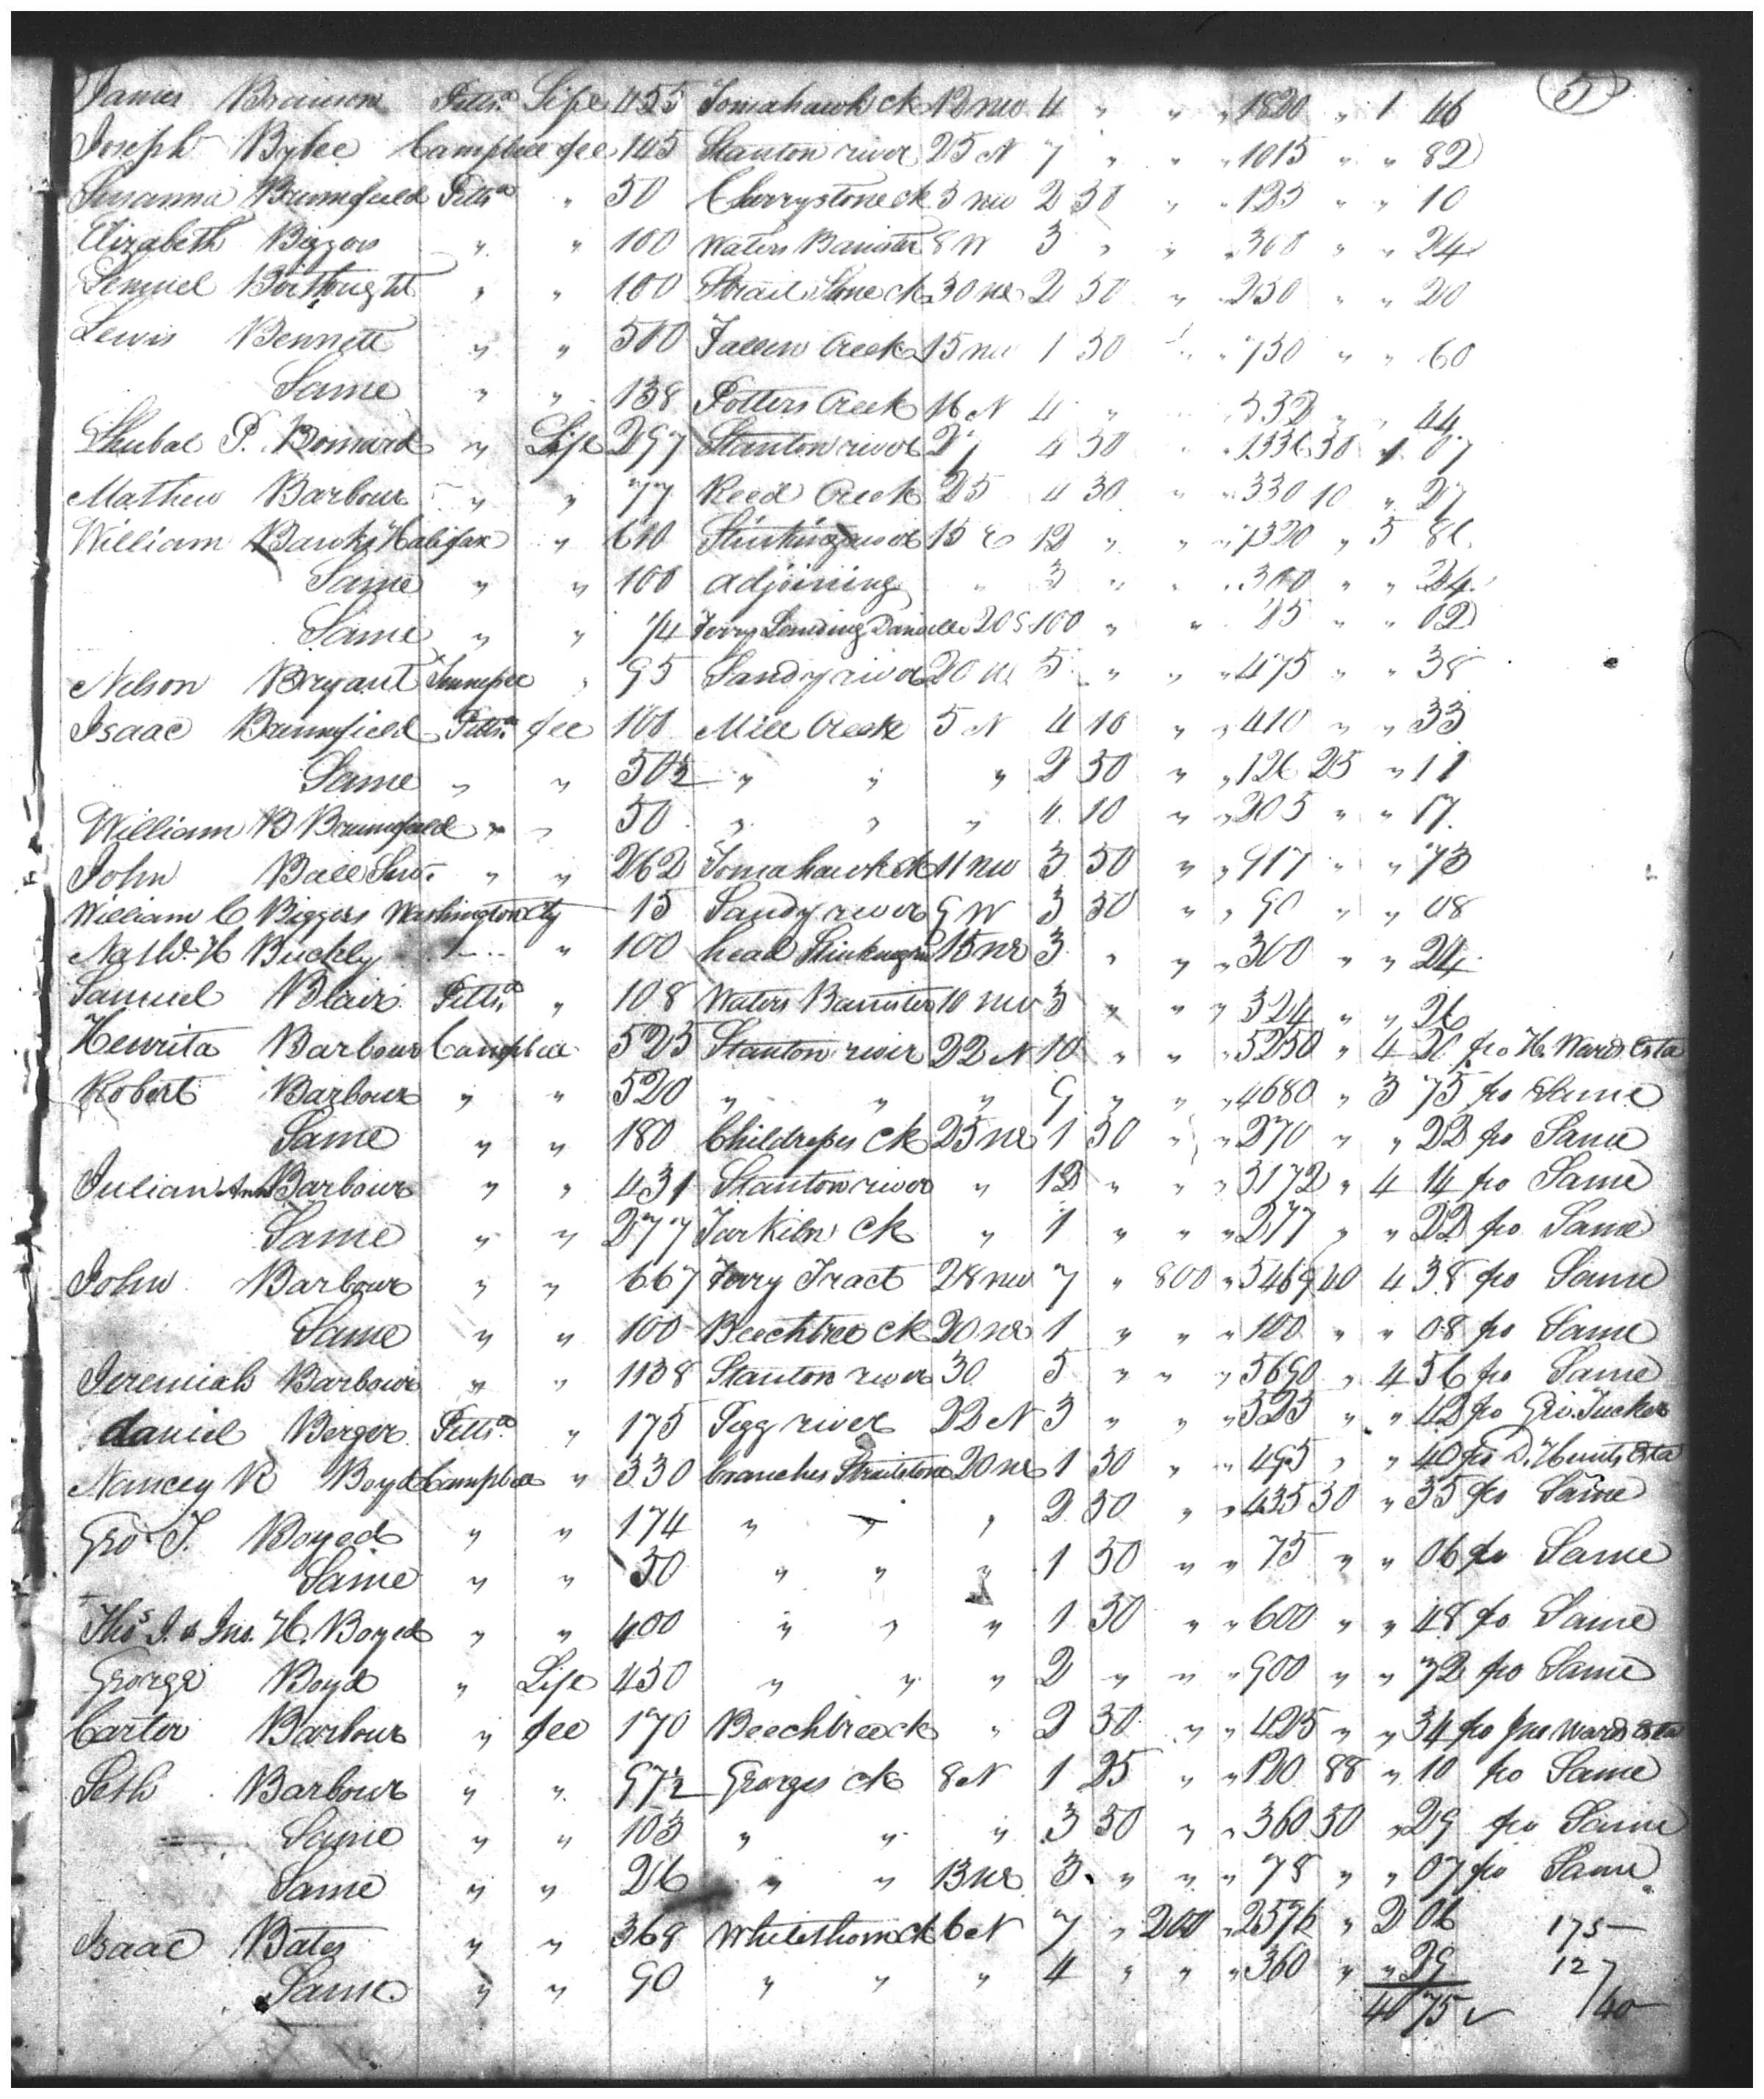 5
James Branson Pitts.a Life 455 Tomahawk Ck 12 nw 4 " " " 1820 " 1 46
Joseph Bybee Campbell fee 145 Stanton river 25 N 7 " " " 1015 " " 82
Susanna Brumfield Pitts.a " 50 Cherrystone Ck 3 nw 2 50 " " 125 " " 10
Elizabeth Biggors " " 100 Waters Banister 8 W 3 " " " 300 " " 24
Lemuel " " 100 Strait Stone ck 30 ne 2 50 " " 250 " " 20
Lewis Bennett " " 500 Creek 15 nw 1 50 " " 750 " " 60
Same " " 138 Potters Creek 16 N 4 " 552 " " 44
Shubal P. " Life 297 Stanton river 27 4 50 " " 1336 50 1 07
Mathew Barbour " " 77 Reed Creek 25 4 30 " " 330 10 " 27
William Banks Halifax " 610 Stinking river 15 E 12 " " " 7320 " 5 86
Same " " 100 adjoining " 3 " " " 300 " " 24
Same " " 1/4 Ferry Landing Danville 20 S 100 " " 25 " " 02
Nelson Bryant Tennessee " 95 Sandy river 20 W 5 " " " 475 " " 38
Isaac Brumfield Pitts.a fee 100 Mill Creek 5 N 4 10 " " 410 " " 33
Same " " 50½ " " " 2 50 " " 126 25 " 11
William B Brumfield " " 50 " " " 4 10 " " 205 " " 17
John Ball Snr. " " 262 Tomahawk ck 11 nw 3 50 " " 917 " " 73
William C Biggers Washington Cty 15 Sandy river 9 W 3 50 " " 90 " " 08
Nathl. H Buckly " 100 head Stinking riv 15 ne 3 " " " 300 " " 24
Samuel Blair Pitts.a " 108 Waters Banister 10 nw 3 " " " 324 " " 26
Henrita Barbour Campbell 525 Stanton river 22 N 10 " " " 5250 " 4 20 fro H. Wards Esta
Robert Barbour " " 520 " " " 9 " " " 4680 " 3 75 fro Same
Same " " 180 Childress Ck 25 ne 1 50 " " 270 " " 22 fro Same
Julian Ann Barbour " " 431 Stanton river " 12 " " " 5172 " 4 14 fro Same
Same " " 277 Tarkiln Ck " 1 " " " 277 " " 22 fro Same
John Barbour " " 667 Ferry Tract 28 nw 7 " 800 " 5469 40 4 38 fro Same
Same " " 100 Beechtree Ck 20 ne 1 " " " 100 " " 08 fro Same
Jeremiah Barbour " " 1138 Stanton river 30 5 " " " 5690 " 4 56 fro Same
daniel Berger Pitts.a " 175 Pigg river 22 N 3 " " " 525 " " 42 fro Geo. Tucker
Nancey R Boyd Campbell " 330 branches Straitstone 20 ne 1 50 " " 495 " " 40 fro D. Hunts Esta
Geo T. Boyed " " 174 " " " 2 50 " " 435 50 " 35 fro Same
Same " " 50 " " " 1 50 " " 75 " " 06 fro Same
Thos. J. & Jno. H. Boyed " " 400 " " " 1 50 " " 600 " " 48 fro Same
George Boyd " Life 450 " " " 2 " " " 900 " " 72 fro Same
Carter Barbour " fee 170 Beechtree ck " 2 50 " " 425 " " 34 fro Jno Wards Esta
Seth Barbour " " 97½ Georges ck 8 N 1 25 " " 120 88 " 10 fro Same
Same " " 103 " " " 3 50 " " 360 50 " 29 fro Same
Same " " 26 " " 13 ne 3 " " " 78 " " 07 fro Same
Isaac Bates " " 368 Whitethorn ck 6 N 7 " 200 " 2576 " 2 06 175
Same " " 90 " " " 4 " " " 360 " " 29 127
40 75 ✓ 140